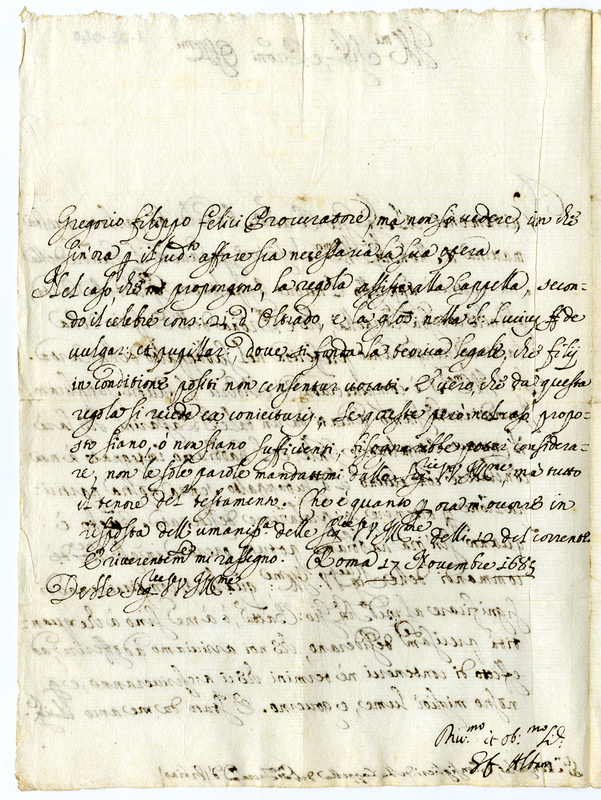 Gregorio Filippo Felici Procuratore, ma non so vedere, in che
sin ora p il sud.to affare sia necessaria la sua opera.
Nel caso, che mi propongono, la regola assiste alla Cappella, secon-
do il celebre cons: 21. d' Oldrado, e la glos: nella l: Lucius ff de
vulgar: et pupillar:, dove si fonda la teorica legale, che filij
in conditione positi non censentur vocati. È vero, che da questa
regola si recede ex coniecturis. Se queste però nel caso propo-
sto siano, ò non siano sufficienti, bisognarebbe poter considera-
re, non le sole parole mandatemi dalle Sig.rie VV. Ill.me ma tutto
il tenore del testamento. Che è quanto p ora m'occorre in
risposta dell'umaniss.a delle Sig.rie VV. Ill.me delli 12 del corrente
e riverentem.e mi rassegno. Roma 17 Novembre 1685
Delle Sig.rie VV. Ill.me
Div.mo et Ob.mo